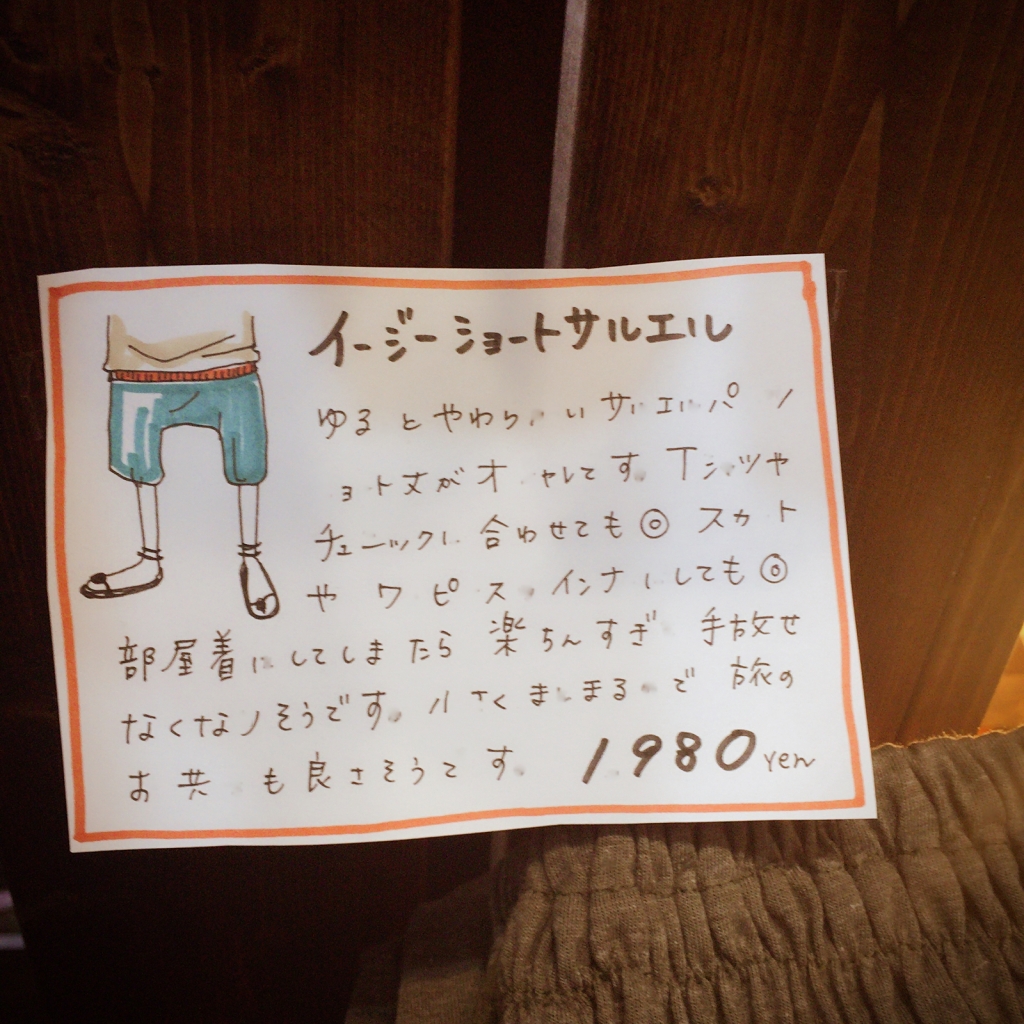 イージーショートサルエル
ゆるっとやわらかいサルエルパンツ
ショート丈がオシャレです。Tシャツや
チェニックに合わせても◎ スカート
やワンピースのインナーにしても◎
部屋着にしてしまたら 楽ちんすぎ 手放せ
なくなりそうです。小さくまとまるので 旅の
お共にも良さそうです。 1980yen